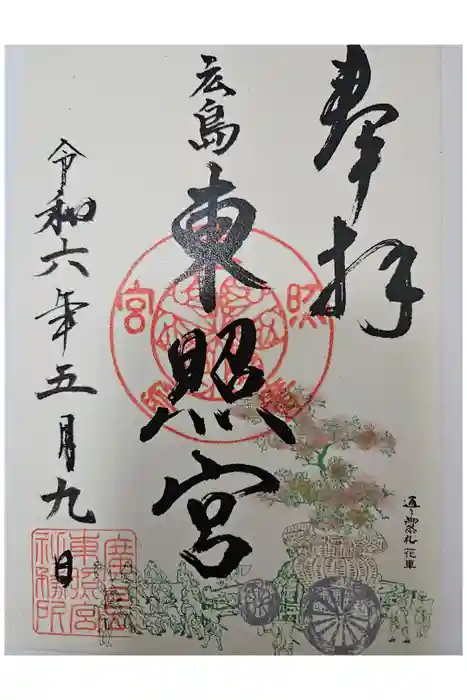 奉拝
広島
東照宮
令和六年五月九日
通り御祭礼 花車
照
宮
廣島
東照宮
社務所